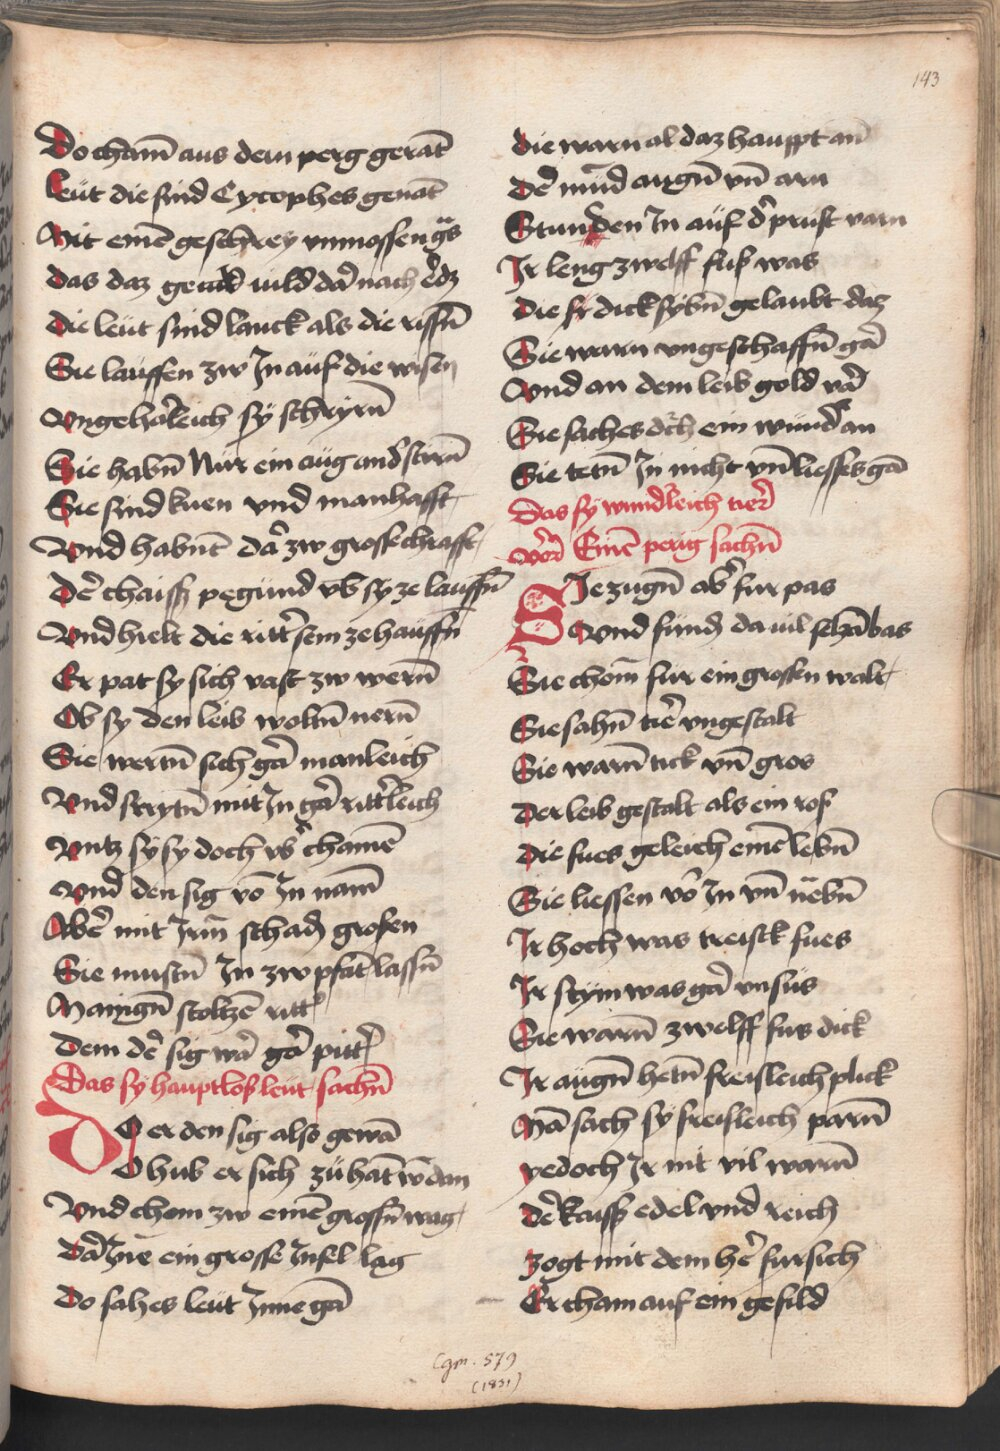 143
Do cham̄ aus dem perg gerāt
Leüt die sind Cycophes genāt
Mit einē geschrey vnmossen gͣs
Das daz gewild uild dar̄ nach erdz
Die leüt sind lanck als die rissn̄
Sie lauffen zw In auf die wisen
Vngehōrleich sÿ schryrn̄
Sie habn̄ Nür ein aüg an dr̄ stirn̄
Sie sind kuen vnd manhafft
Vnd habnt̄ dar̄ zw grosse chrafft
Der̄ chaiss pegund vb sy ze lauffn̄
Vnd hielt die rittr̄ sein ze hauffn̄
Er pat sy sich vast zw wern̄
Ob sy den leib woltn̄ nern̄
Sie wertn̄ sich gar̄ manleich
Vnd strytn̄ mit In gar̄ rittr̄leich
Vntz sy sy doch vbr̄ chamē
Vnd den sig vō In nam̄
Aber̄ mit Irm̄ schadn̄ grosen
Sie mustn̄ In zw pfāt lassn̄
Manign̄ stoltzē rittr̄
Dem der̄ sig war̄ gar̄ pittr̄
Das sy hauptlos leut sachn̄
Do er den sig also gewā
Do hub er sich zü hāt vō dan
Vnd chom zw einē grossn̄ wag
Dar Inē ein grosse Insel lag
Do sahes leüt Inne gā
Die warn al daz hauppt an
Der̄ mūd augn̄ vn̄ arn
Stunden In aüf dr̄ prust varn
Ir leng zwelff fus was
Die sy dick sybn̄ gelaubt daz
Sie warn vngeschaffn̄ gar̄
Vnd an dem leib gold var̄
Sie saches durch ein wundr̄ an
Sie tetn̄ In nicht vn̄ liesses gā
Das sy wundr̄leich tier̄
vor̄ Einē perig sachn̄
Sie zugn̄ abr̄ fur pas
Vnd fundn̄ da uil selzābas
Sie chom̄ fur ein grossen walt
Sie sahn̄ tier̄ vngestalt
Sie warn̄ tick vn̄ gros
Der leib gestalt als ein ros
Die fues geleich einē lebn̄
Sie liessen vor̄ In vn̄ nebn̄
Ir hoch was treisck fues
Ir stym was gar̄ vnsüs
Sie warn̄ zwelff fus dick
Ir augn̄ hetn̄ freisleich plick
Man̄ sach sy freisleich parn̄
yedoch Ir nit vil warn̄
Der̄ kaiss edel vnd reich
Zogt mit dem her̄ fur sich
Er cham auf ein gefild
Cgm. 579
(1831)